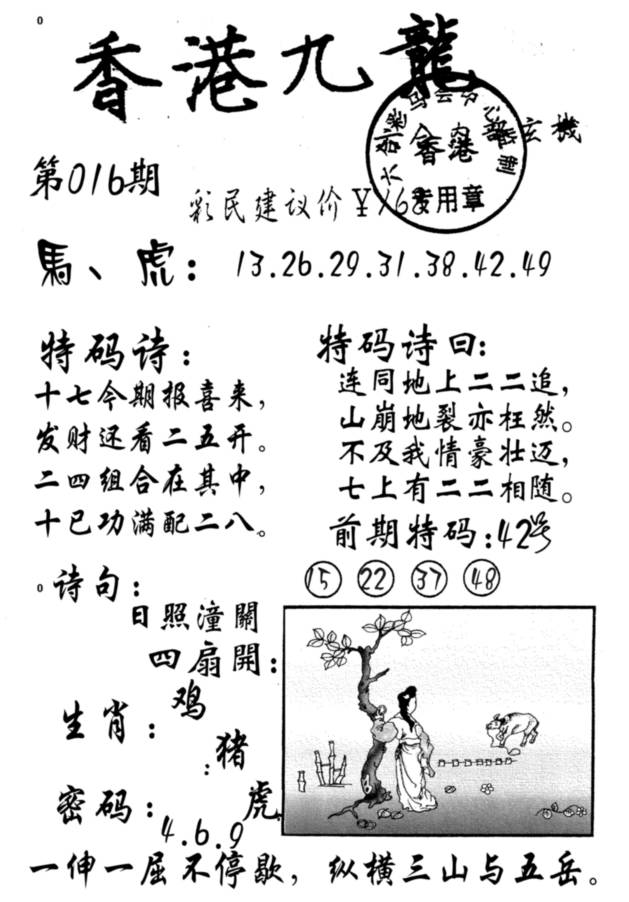 香港九龍
玄機
香港
专用章
第016期
彩民建议价¥
馬、虎：13.26.29.31.38.42.49
特码诗：
十七今期报喜来，
发财还看二五开。
二四组合在其中，
十已功满配二八。
特码诗曰：
连同地上二二追，
山崩地裂亦枉然。
不及我情豪壮迈，
七上有二二相随。
前期特码：42号
15 22 37 48
诗句：
日照潼關
四扇開：
生肖：鸡
：猪
虎
密码：4.6.9
一伸一屈不停歇，纵横三山与五岳。